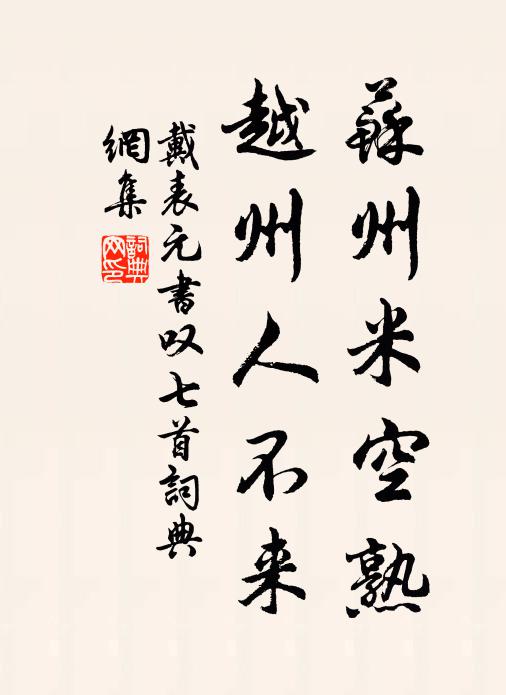 蘇州米空熟
越州人不来
戴表元書叹七首詞典
網集
詞典网印